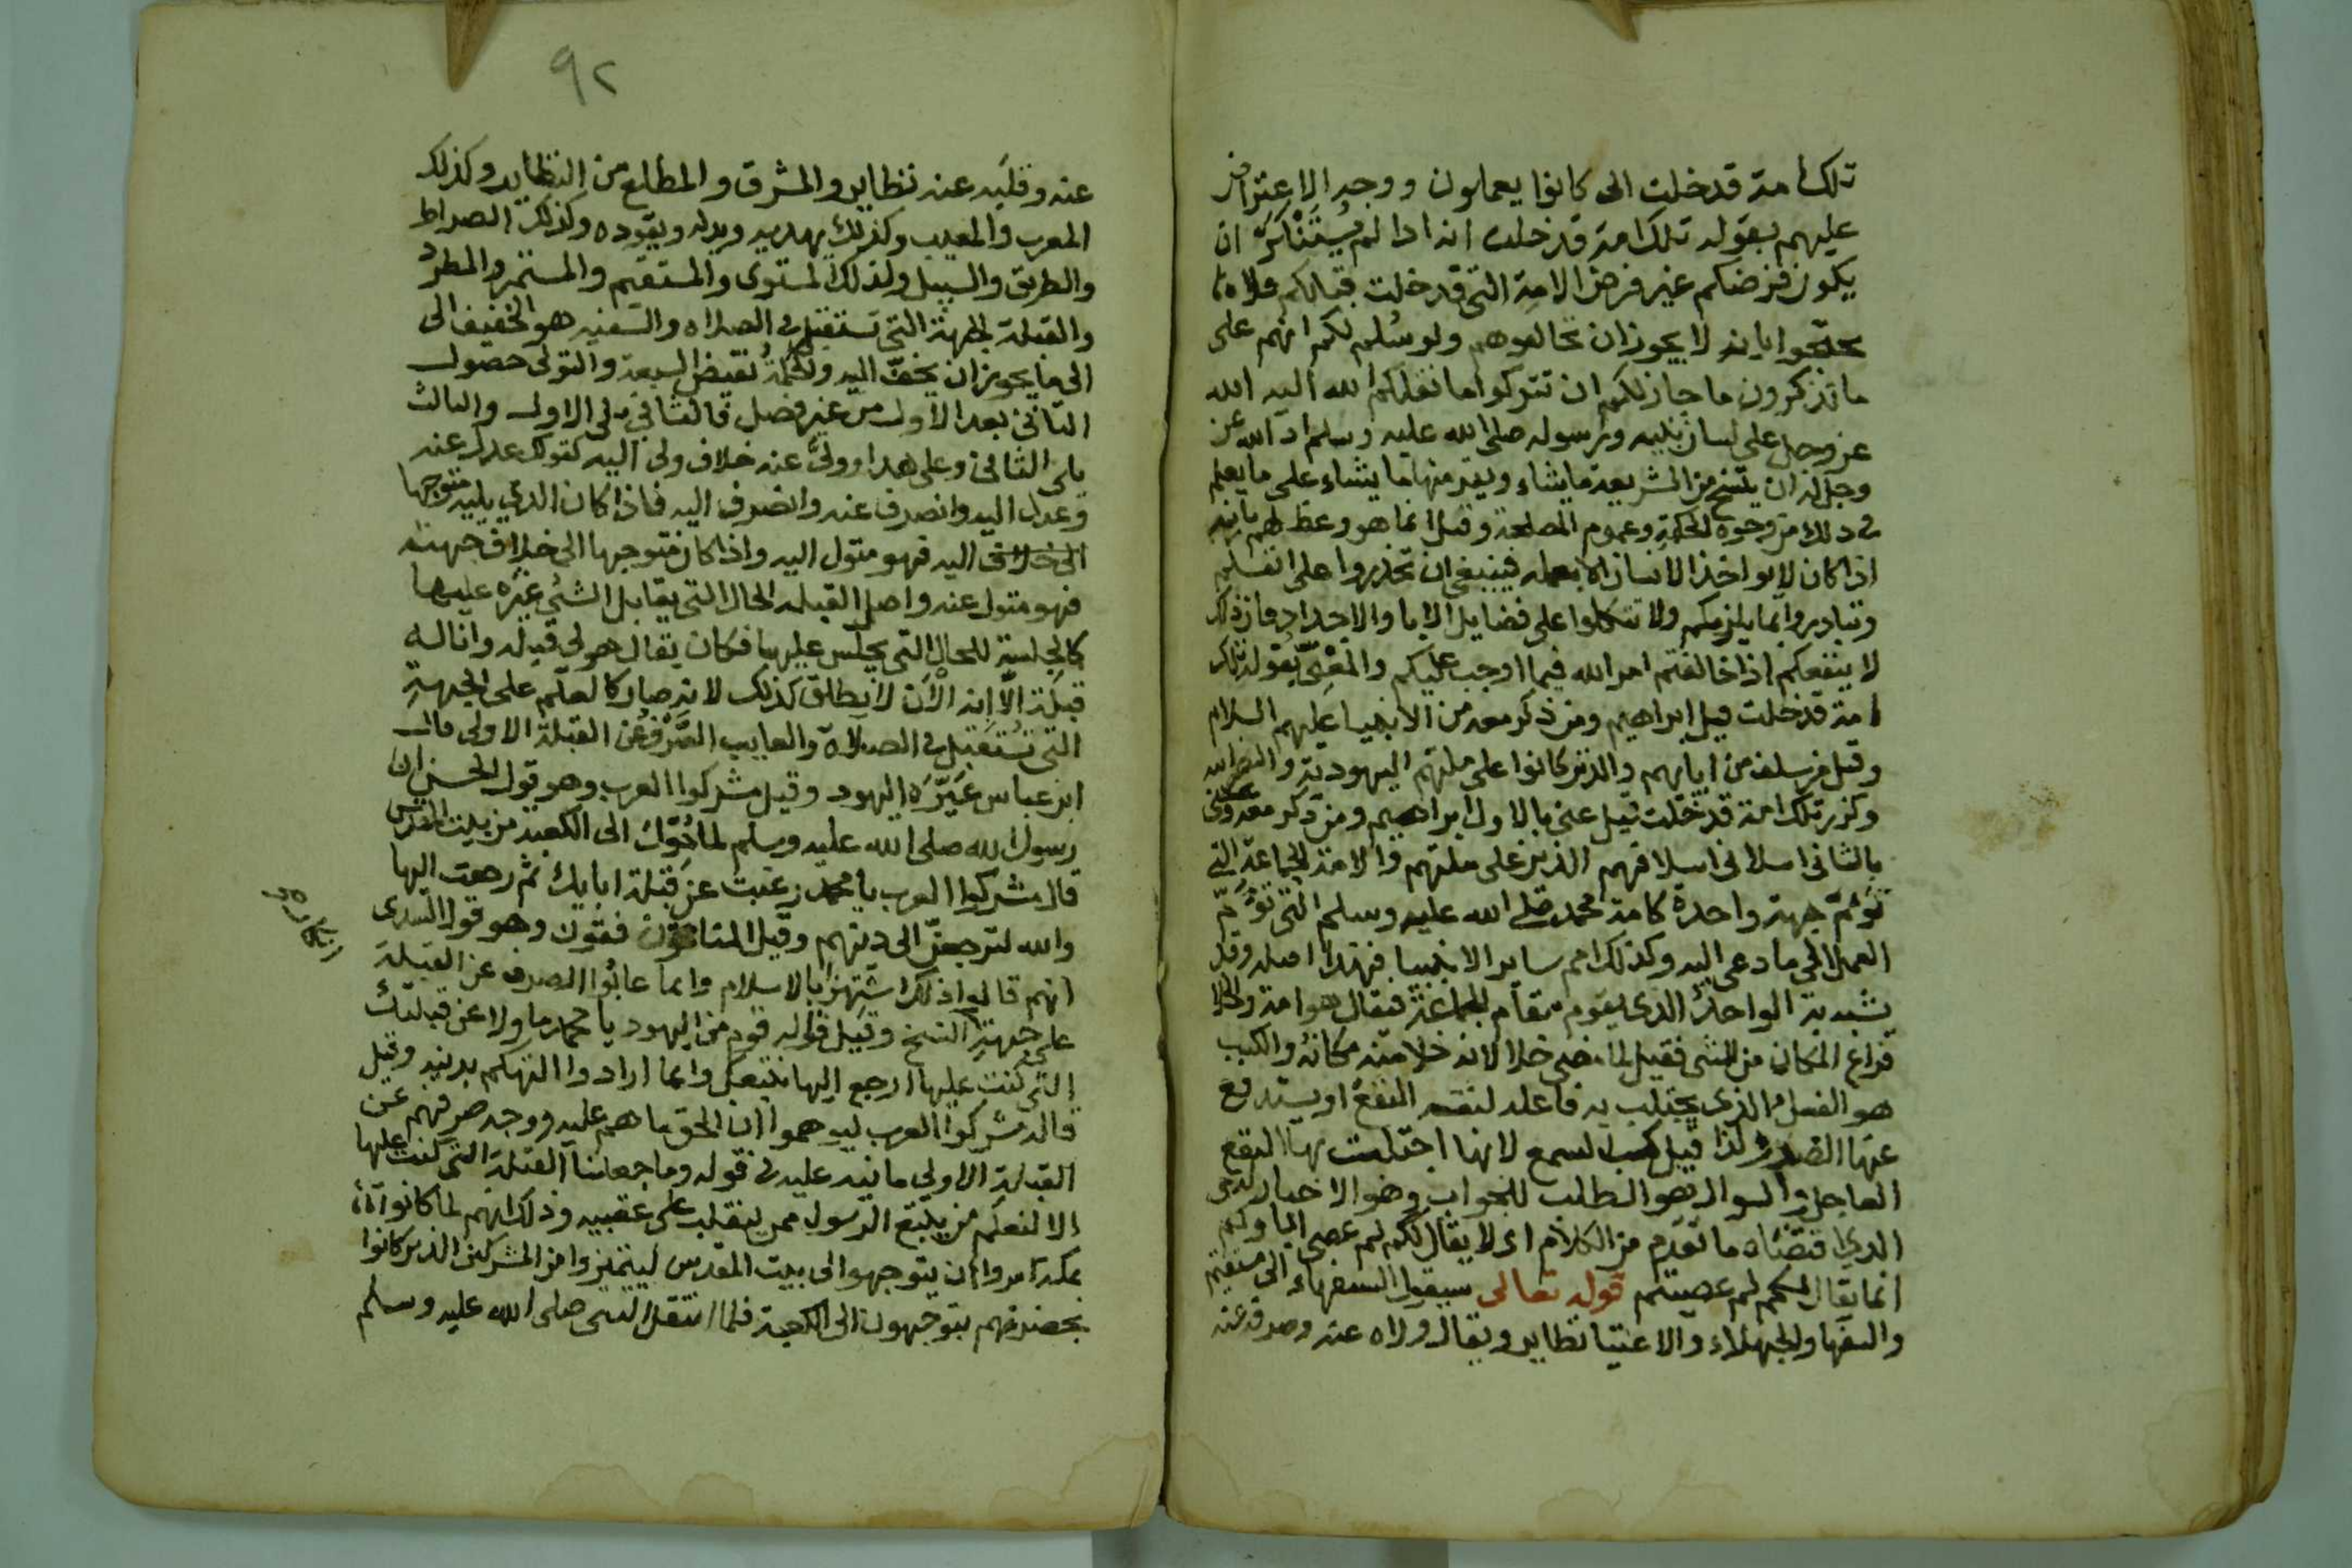 تلك امة قد خلت الى كانوا يعملون ووجه الاعتراض
عليهم بقوله تلك امة قد خلت انه اذا لم يُسْتَنْكَرَ ان
يكون فرضكم غير فرض الامة التي قد خلت قبلكم فلا
تحتجوا بانه لا يجوز ان تخالفوهم ولو سُلم لكم انهم على
ما تذكرون ما جاز لكم ان تتركوا ما نقلكم الله اليه الله
عز وجل على لسان نبيه ورسوله صلى الله عليه وسلم اذ الله عز
وجل له ان ينسخ من الشريعة ما يشاء ويقر منها ما يشاء على ما يعلم
في ذلك من وجوه الحكمة وعموم المصلحة وقيل انما هو وعظ لهم بانه
اذا كان لا يواخذ الانسان الا بعمله فينبغي ان تحذروا على انفسكم
وتبادروا بما يلزمكم ولا تتكلوا على فضايل الابا والاجداد فان ذلك
لا ينفعكم اذا خالفتم امر الله فيما اوجب عليكم والمَعْنِيّ بقوله تلك
امة قد خلت قيل ابراهيم ومن ذكر معه من الانبيا عليهم السلام
وقيل من سلف من ابايهم والذين كانوا على ملتهم اليهودية والنصرانيه
وكرر تلك امة قد خلت قيل عنى بالاول ابراهيم ومن ذكر معه وعنى
بالثاني اسلافهم الذين على ملتهم والامة الجماعة التي
تَوُمّ جهة واحدة كامة محمد صلى الله عليه وسلم التي تَوُمّ
العمل الى ما دعي اليه وكذلك امم ساير الانبيا فهذا اصله وقد
يشبه به الواحد الذي يقوم مقام الجماعة فيقال هو امة والخلا
فراغ المكان من الشي فقيل لما مضى خلا لانه خلا منه مكانه والكسب
هو الفعل الذي يجتلب به فاعله لنفسه النفع او يستدفع
عنها الضرر ولذا قيل كسب لسمع لانها اجتلبت بها النفع
العاجل والسوال هو الطلب للجواب وهو الاخبار
الذي اقتضاه ما تقدم من الكلام اي لا يقال لكم لم عصى اباوكم
انما يقال لكم لم عصيتم قوله تعالى سيقول السفهاء الى مستقيم
والسفها والجهلاء والاغبيا نظاير ويقال ولاه عنه وصرفه عنه
٩٢
عنه وقلبه عنه نظاير والمشرق والمطلع من النظاير وكذلك
المغرب والمغيب وكذلك يهديه ويدله ويقوده وكذلك الصراط
والطريق والسبيل وكذلك المستوى والمستقيم والمستمر والمطرد
والقبلة الجهة التي تستقبل في الصلاه والسفيه هو الخفيف الى
الى ما يجوز ان يخف اليه والحكمة نقيض السفه والتولى حصول
الثاني بعد الاول من غير فصل فالثاني يلى الاول والثالث
يلى الثاني وعلى هذا وولى عنه خلاف ولى اليه كقولك عدل عنه
وعدل اليه وانصرف عنه وانصرف اليه فاذا كان الذي يليه متوجها
اليه فهو متول اليه واذا كان متوجها الى خلاف جهته
فهو متول عنه واصل القبله الحال التي يقابل الشي غيره عليها
كالجلسة للحال التي يجلس عليها فكان يقال هو لى قبلة وانا له
قبلة الا انه الآن لا يطلق كذلك لانه صار كالعلم على الجهة
التي تُستقبل في الصلاة والعايب الصَّرْف عن القبلة الاولى قال
ابن عباس عَيَّرَه اليهود وقيل مشركوا العرب وهو قول الحسن ان
رسول الله صلى الله عليه وسلم لما حُوِّل الى الكعبة من بيت المقدس
قال مشركوا العرب يا محمد رغبت عن قبلة ابايك ثم رجعت اليها
والله لترجعن الى دينهم وقيل المنافقون وهو قول السدى
انهم قالوا ذلك استهزا بالاسلام وانما عابُوا الصرف عن القبلة
على جهة النسخ وقيل قاله قوم من اليهود يا محمد ما ولاك عن قبلتك
التي كنت عليها ارجع اليها نتبعك وانما ارادوا التهكم بدينه وقيل
قاله مشركوا العرب ليوهموا ان الحق ما هم عليه ووجه صرفهم عن
القبلة الاولى ما نبه عليه في قوله وما جعلنا القبلة التي كنت عليها
الا لنعلم من يتبع الرسول ممن ينقلب على عقبيه وذلك انهم لما كانوا
بمكة امروا ان يتوجهوا الى بيت المقدس ليتميزوا من المشركين الذين كانوا
بحضرتهم يتوجهون الى الكعبة فلما انتقل النبى صلى الله عليه وسلم